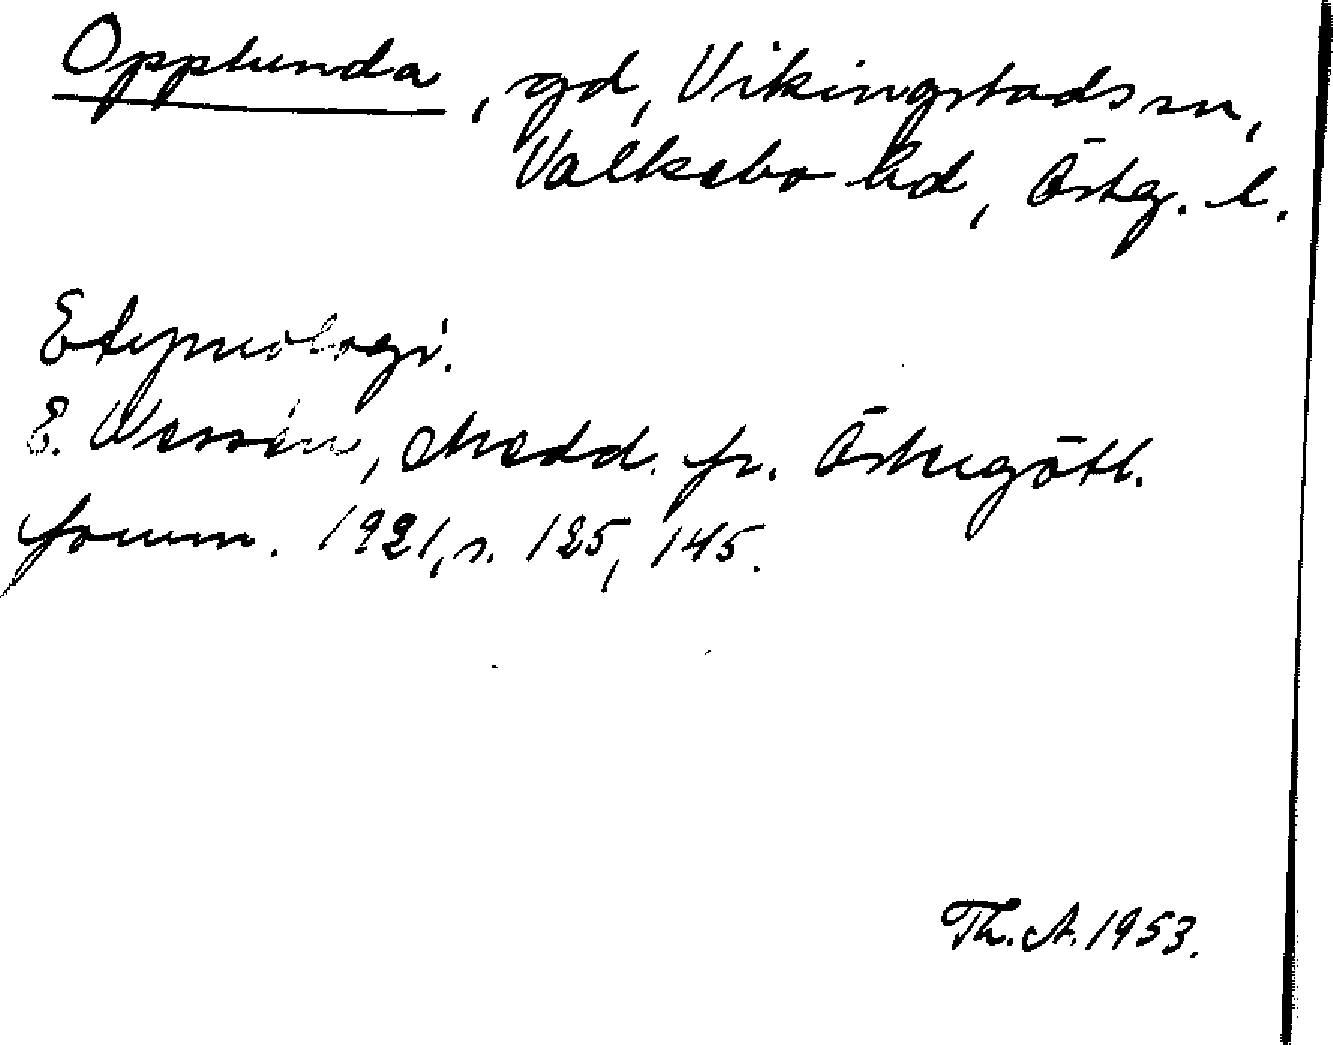 Opplunda, gd, Vikingstads sn,
Valkebo hd, Östg. l.
Etymologi.
E. Wessén, Medd. fr. Östergötl.
fornm. 1921, s. 125, 145.
Th. A. 1953.